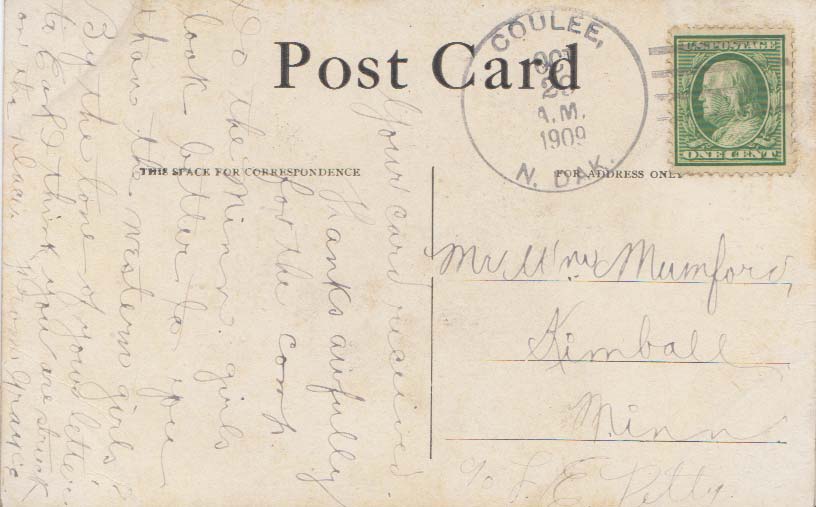 Post Card
COULEE,
OCT
29
A.M.
1909
N. DAK.
U.S. POSTAGE
ONE CENT
THIS SPACE FOR CORRESPONDENCE
FOR ADDRESS ONLY
Your card received.
Thanks awfully
for the comp
Do the Minn. girls
look better to you
than the western girls?
By the tone of your letter
to Earl I think you are stuck
on the place.
Mr. Wm Mumford,
Kimball
Minn.
c/o L E Petty.